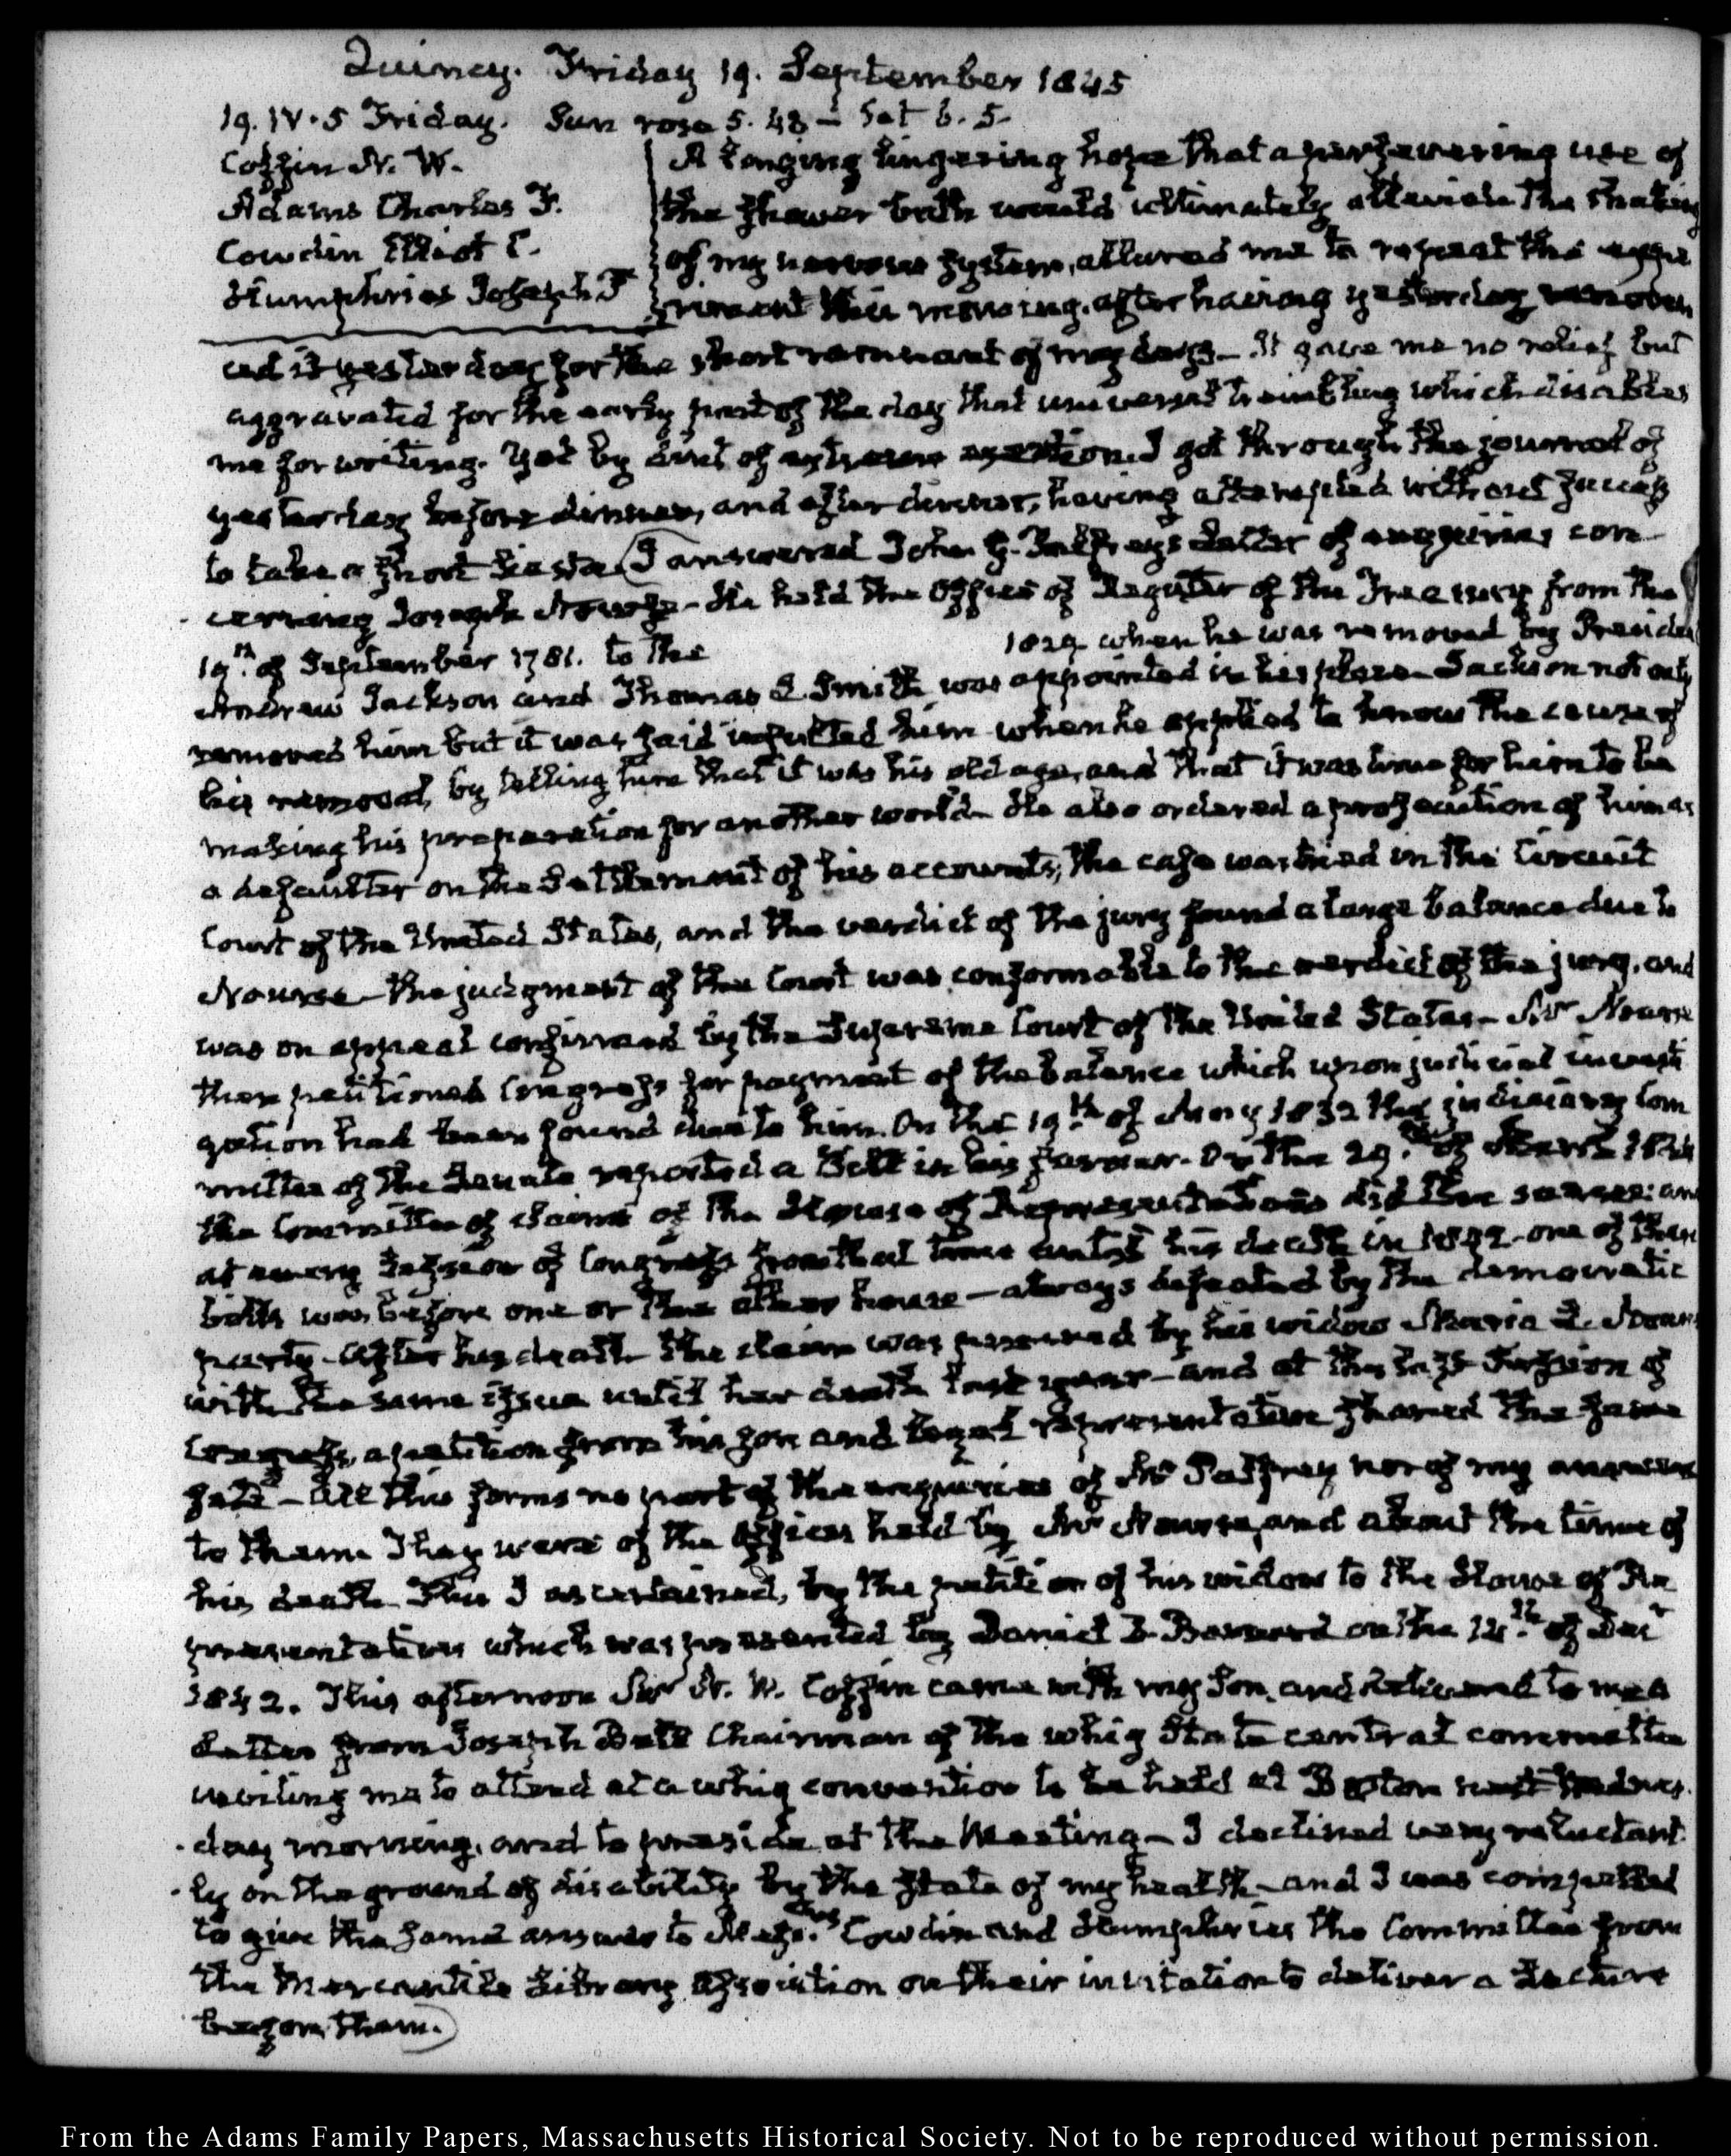 Quincy. Friday 19. September 1845
19. IV. 5 Friday. Sun rose 5. 48 – Set 6. 5.
Coffin N. W.
Adams Charles F.
Cowdin Elliot C.
Humphries Joseph F
A longing lingering hope that a persevering use of
the shower bath would ultimately alleviate the shaking
of my nervous system, allured me to repeat the expe
riment this morning, after having yesterday
it yesterday for the short remnant of my days – It gave me no relief but
aggravated for the early part of the day that universal trembling which disables
me for writing. Yet by dint of extreme exertion I got through the journal of
yesterday before dinner, and after dinner, having attempted without success
to take a short siesta (I answered John G. Palfrey's Letter of enquiries con
cerning Joseph Nourse – He held the Office of Register of the Treasury from the
19th. of September 1781. to the 1829 when he was removed by President
Andrew Jackson and Thomas L Smith was appointed in his place – Jackson not only
removed him but it was said insulted him when he applied to know the cause of
his removal, by telling him that it was his old age, and that it was time for him to be
making his preparation for another world – He also ordered a prosecution of him as
a defaulter on the Settlement of his accounts, the case was tried in the Circuit
Court of the United States, and the verdict of the jury found a large balance due to
Nourse – the judgment of the Court was conformable to the verdict of the jury, and
was on appeal confirmed by the Supreme Court of the United States – Mr Nourse
then petitioned Congress for payment of the balance which upon judicial investi
gation had been found due to him. On the 19th of 1832 the judiciary Com
mittee of the Senate reported a Bill in his favour – On the 29. of March
the Committee of Claims of the House of Representatives did the same; and
at every Session of Congress from that time until his death in one of these
bills was before one or the other house – always defeated by the democratic
party – After his death the claim was pursued by his widow Maria L. Nourse
with the same issue until her death last year – and at the last Session of
Congress, a petition from his son and legal representative shared the same
fate – All this forms no part of the enquiries of Mr Palfrey nor of my answers
to them. They were of the Offices held by Mr Nourse, and about the time of
his death. This I ascertained, by the petition of his widow to the House of Re
presentatives which was presented by Daniel D Barnard on the of Decr
1842. This afternoon Mr N. W. Coffin came with my Son, and delivered to me a
Letter from Joseph Bell Chairman of the whig State central committee
inviting me to attend at a whig convention to be held at Boston next Wednes
day morning, and to preside at the Meeting – I declined very reluctant
ly on the ground of disability by the state of my health – and I was compelled
to give the same answer to Messrs. Cowdin and Humphries the Committee from
the Mercantile Library Association on their invitation to deliver a Lecture
before them.)
From the Adams Family Papers, Massachusetts Historical Society. Not to be reproduced without permission.